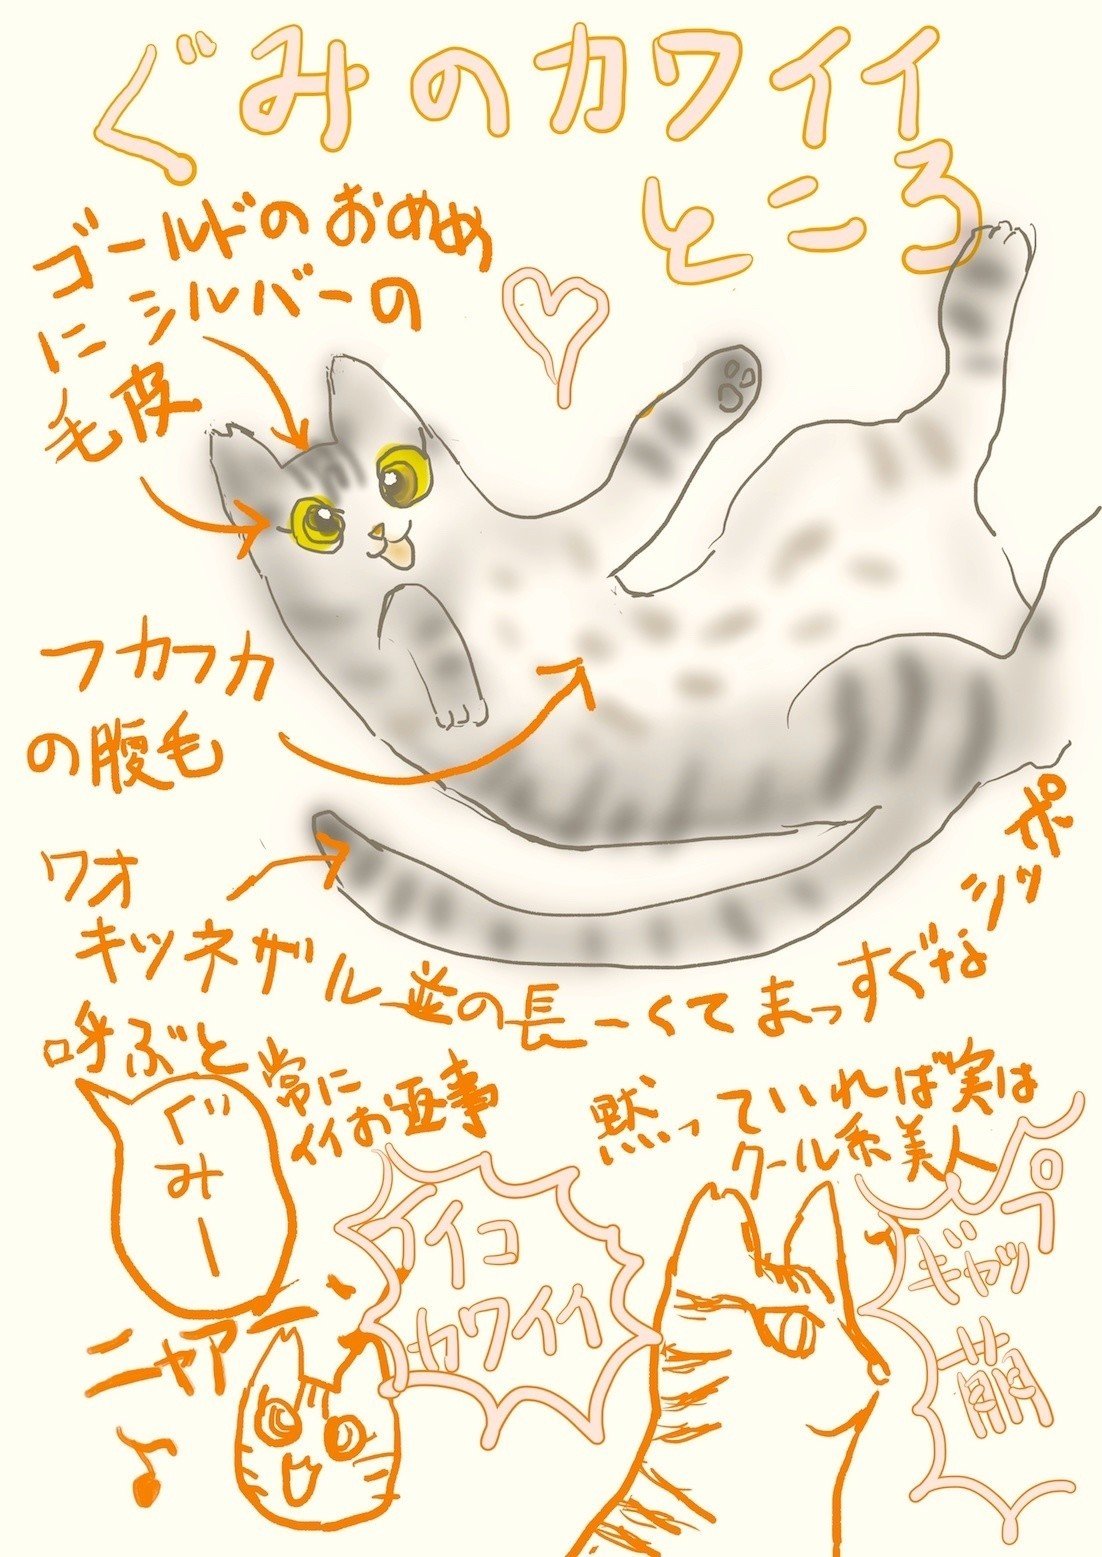 ぐみのカワイイ
ところ
ゴールドのおめめ
にシルバーの
毛皮
フカフカ
の腹毛
ワオ
キツネザル並の長ーくてまっすぐなシッポ
呼ぶと
常に
イイお返事
ぐみー
ニャアーン
イイコ
カワイイ
黙っていれば実は
クール系美人
ギャップ
萌